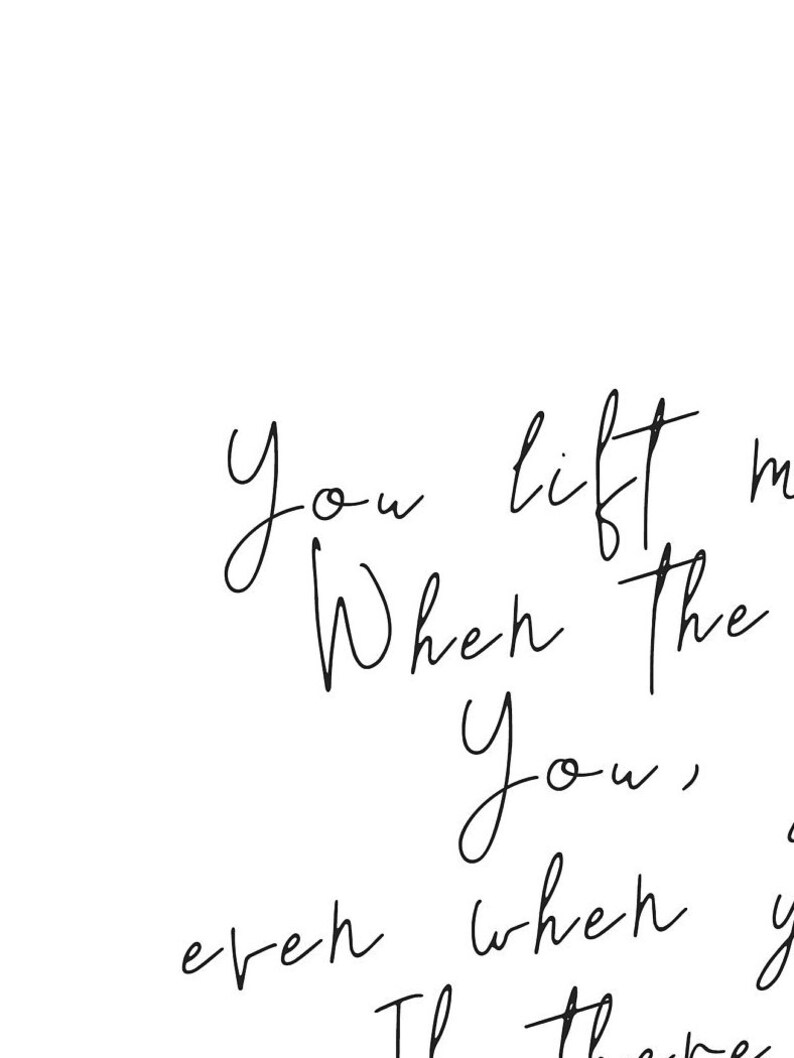 You lift m
When the
You,
even when y
there